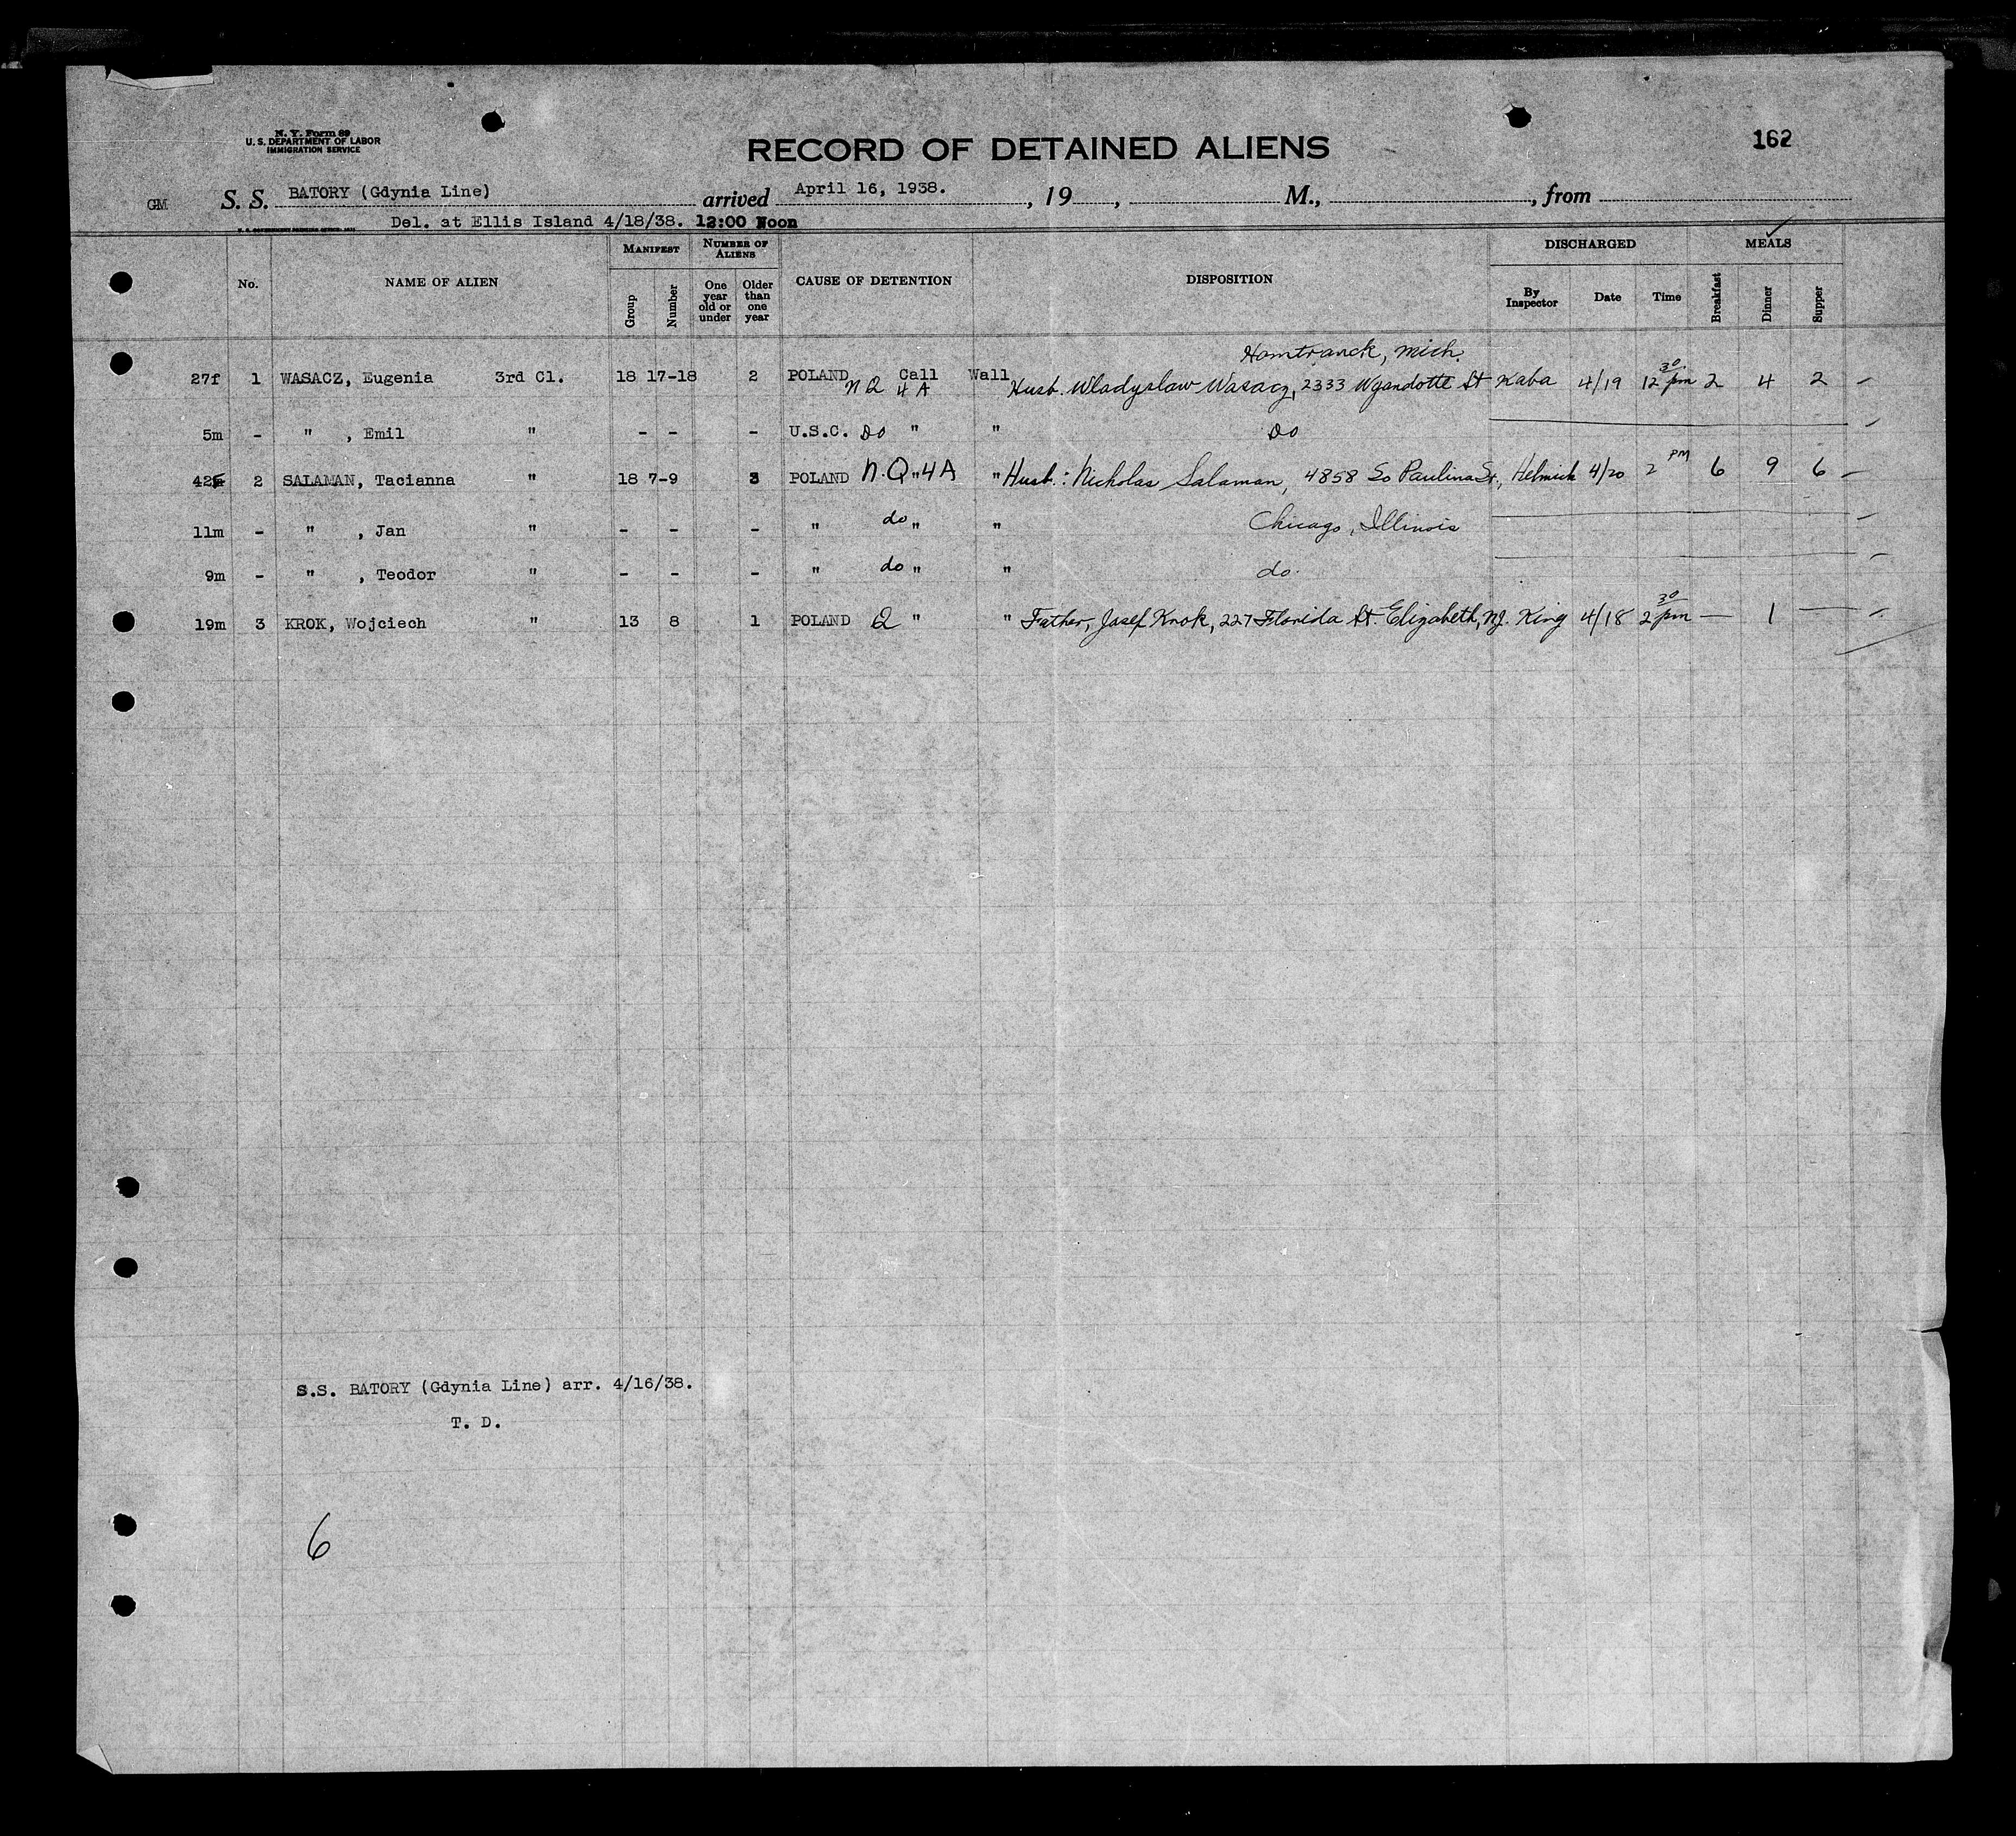 N. Y. Form 89
U. S. DEPARTMENT OF LABOR
IMMIGRATION SERVICE
RECORD OF DETAINED ALIENS
162
GM S. S. BATORY (Gdynia Line) arrived April 16, 1938. , 19 , M., , from
Del. at Ellis Island 4/18/38. 12:00 Noon
No. NAME OF ALIEN MANIFEST Group Number NUMBER OF ALIENS One year old or under Older than one year CAUSE OF DETENTION DISPOSITION DISCHARGED By Inspector Date Time MEALS Breakfast Dinner Supper
Hamtranck, Mich.
27f 1 WASACZ, Eugenia 3rd Cl. 18 17-18 2 POLAND NQ 4A Call Wall Husb. Wladyslaw Wasacz, 2333 Wyandotte St Kaba 4/19 12 30 pm 2 4 2 -
5m - " , Emil " - - - U.S.C. Do " " Do -
42f 2 SALAMAN, Tacianna " 18 7-9 3 POLAND N.Q " 4A " Husb.: Nicholas Salaman, 4858 So Paulina St., Helmick 4/20 2 PM 6 9 6 -
11m - " , Jan " - - - " do " " Chicago, Illinois -
9m - " , Teodor " - - - " do " " do. -
19m 3 KROK, Wojciech " 13 8 1 POLAND Q " " Father, Josef Krok, 227 Florida St. Elizabeth, NJ. King 4/18 2 30 pm — 1 — -
S.S. BATORY (Gdynia Line) arr. 4/16/38.
T. D.
6